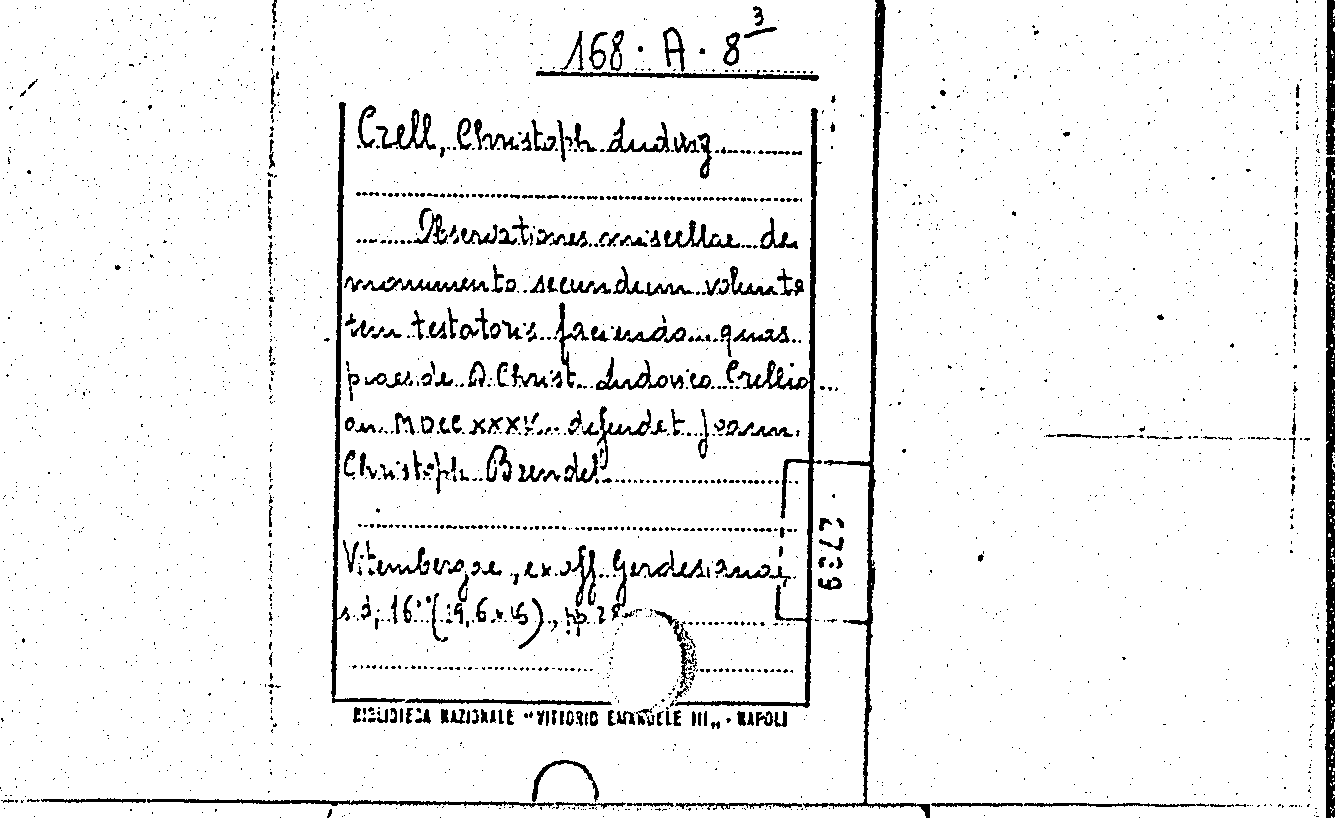 168 · A · 8³
Crell, Christoph Ludwig
Observationes miscellae de
monumento secundum volunta
tem testatoris faciendo quas
praeside D. Christ. Ludovico Crellio
an MDCCXXXV defendet Joann.
Christoph Brendel
Vitembergae, ex off. Gerdesiana,
s.d., 16° (19,6 x 15), pp. 28
BIBLIOTECA NAZIONALE "VITTORIO EMANUELE III" - NAPOLI